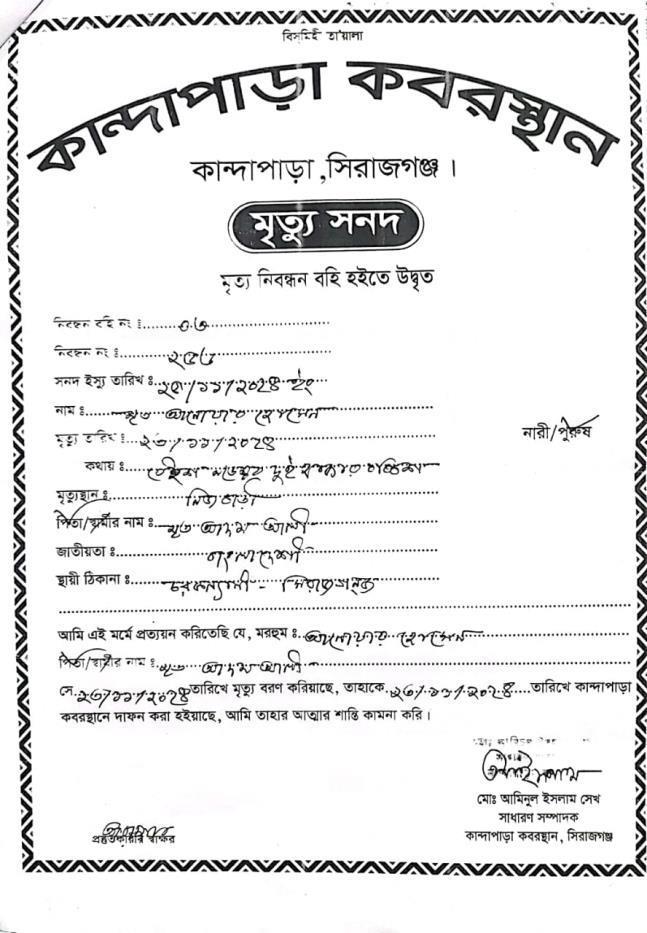 বিসমিহী তা'য়ালা
কান্দাপাড়া কবরস্থান
কান্দাপাড়া ,সিরাজগঞ্জ ।
মৃত্যু সনদ
মৃত্য নিবন্ধন বহি হইতে উদ্বৃত
নিবন্ধন বহি নং ঃ........০৩
নিবন্ধন নং ঃ
সনদ ইস্যু তারিখ ঃ ২৫/১১/২০২৪ ইং
নাম ঃ মৃত আনোয়ার হোসেন
মৃত্যু তারিখ ঃ ২৩/১১/২০২৪
নারী/পুরুষ
কথায় ঃ তেইশ নভেম্বর দুই হাজার চব্বিশ
মৃত্যুস্থান ঃ নিজ বাড়ী
পিতা/স্বামীর নাম ঃ মৃত আদম আলী
জাতীয়তা ঃ বাংলাদেশী
স্থায়ী ঠিকানা ঃ সিরাজগঞ্জ
আমি এই মর্মে প্রত্যয়ন করিতেছি যে, মরহুম ঃ আনোয়ার হোসেন
পিতা/স্বামীর নাম ঃ মৃত আদম আলী
সে. ২৩/১১/২০২৪ তারিখে মৃত্যু বরণ করিয়াছে, তাহাকে. ২৩/১১/২০২৪....তারিখে কান্দাপাড়া
কবরস্থানে দাফন করা হইয়াছে, আমি তাহার আত্মার শান্তি কামনা করি ।
মোঃ আমিনুল ইসলাম সেখ
সাধারণ সম্পাদক
কান্দাপাড়া কবরস্থান, সিরাজগঞ্জ
প্রস্তুতকারীর স্বাক্ষর